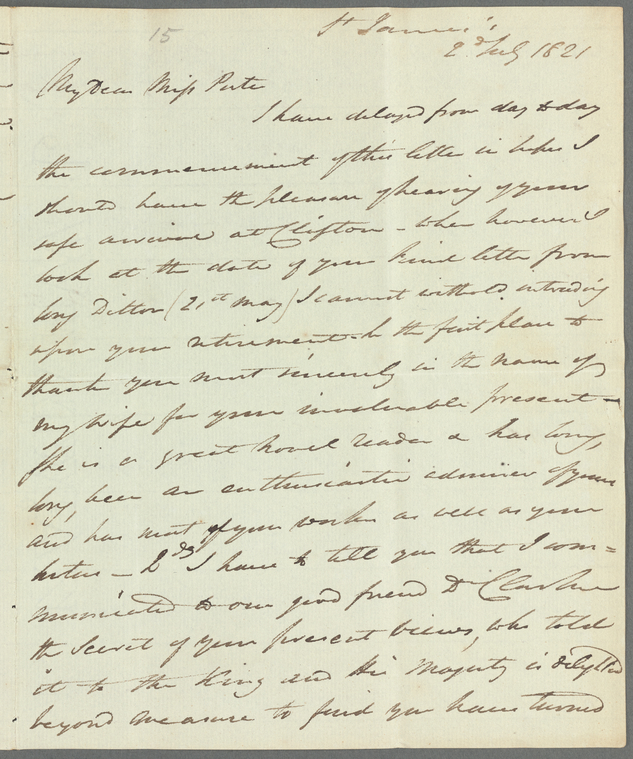 15
St James's
2d July 1821
My Dear Miss Porter
I have delayed from day to day
the commencement of this letter in hopes I
should have the pleasure of hearing of your
safe arrival at Clifton - when however I
look at the date of your kind letter from
long Ditton (21st May) I cannot withold intruding
upon your retirement. In the first place to
thank you most sincerely in the name of
my wife for your invaluable present -
She is a great novel reader & has long,
long, been an enthusiastic admirer of yours
and has most of your works as well as your
sisters - 2dly I have to tell you that I com=
municated to our good friend Dr Clarke
the secret of your present views, who told
it to the King and His Majesty is delighted
beyond measure to find you have turned